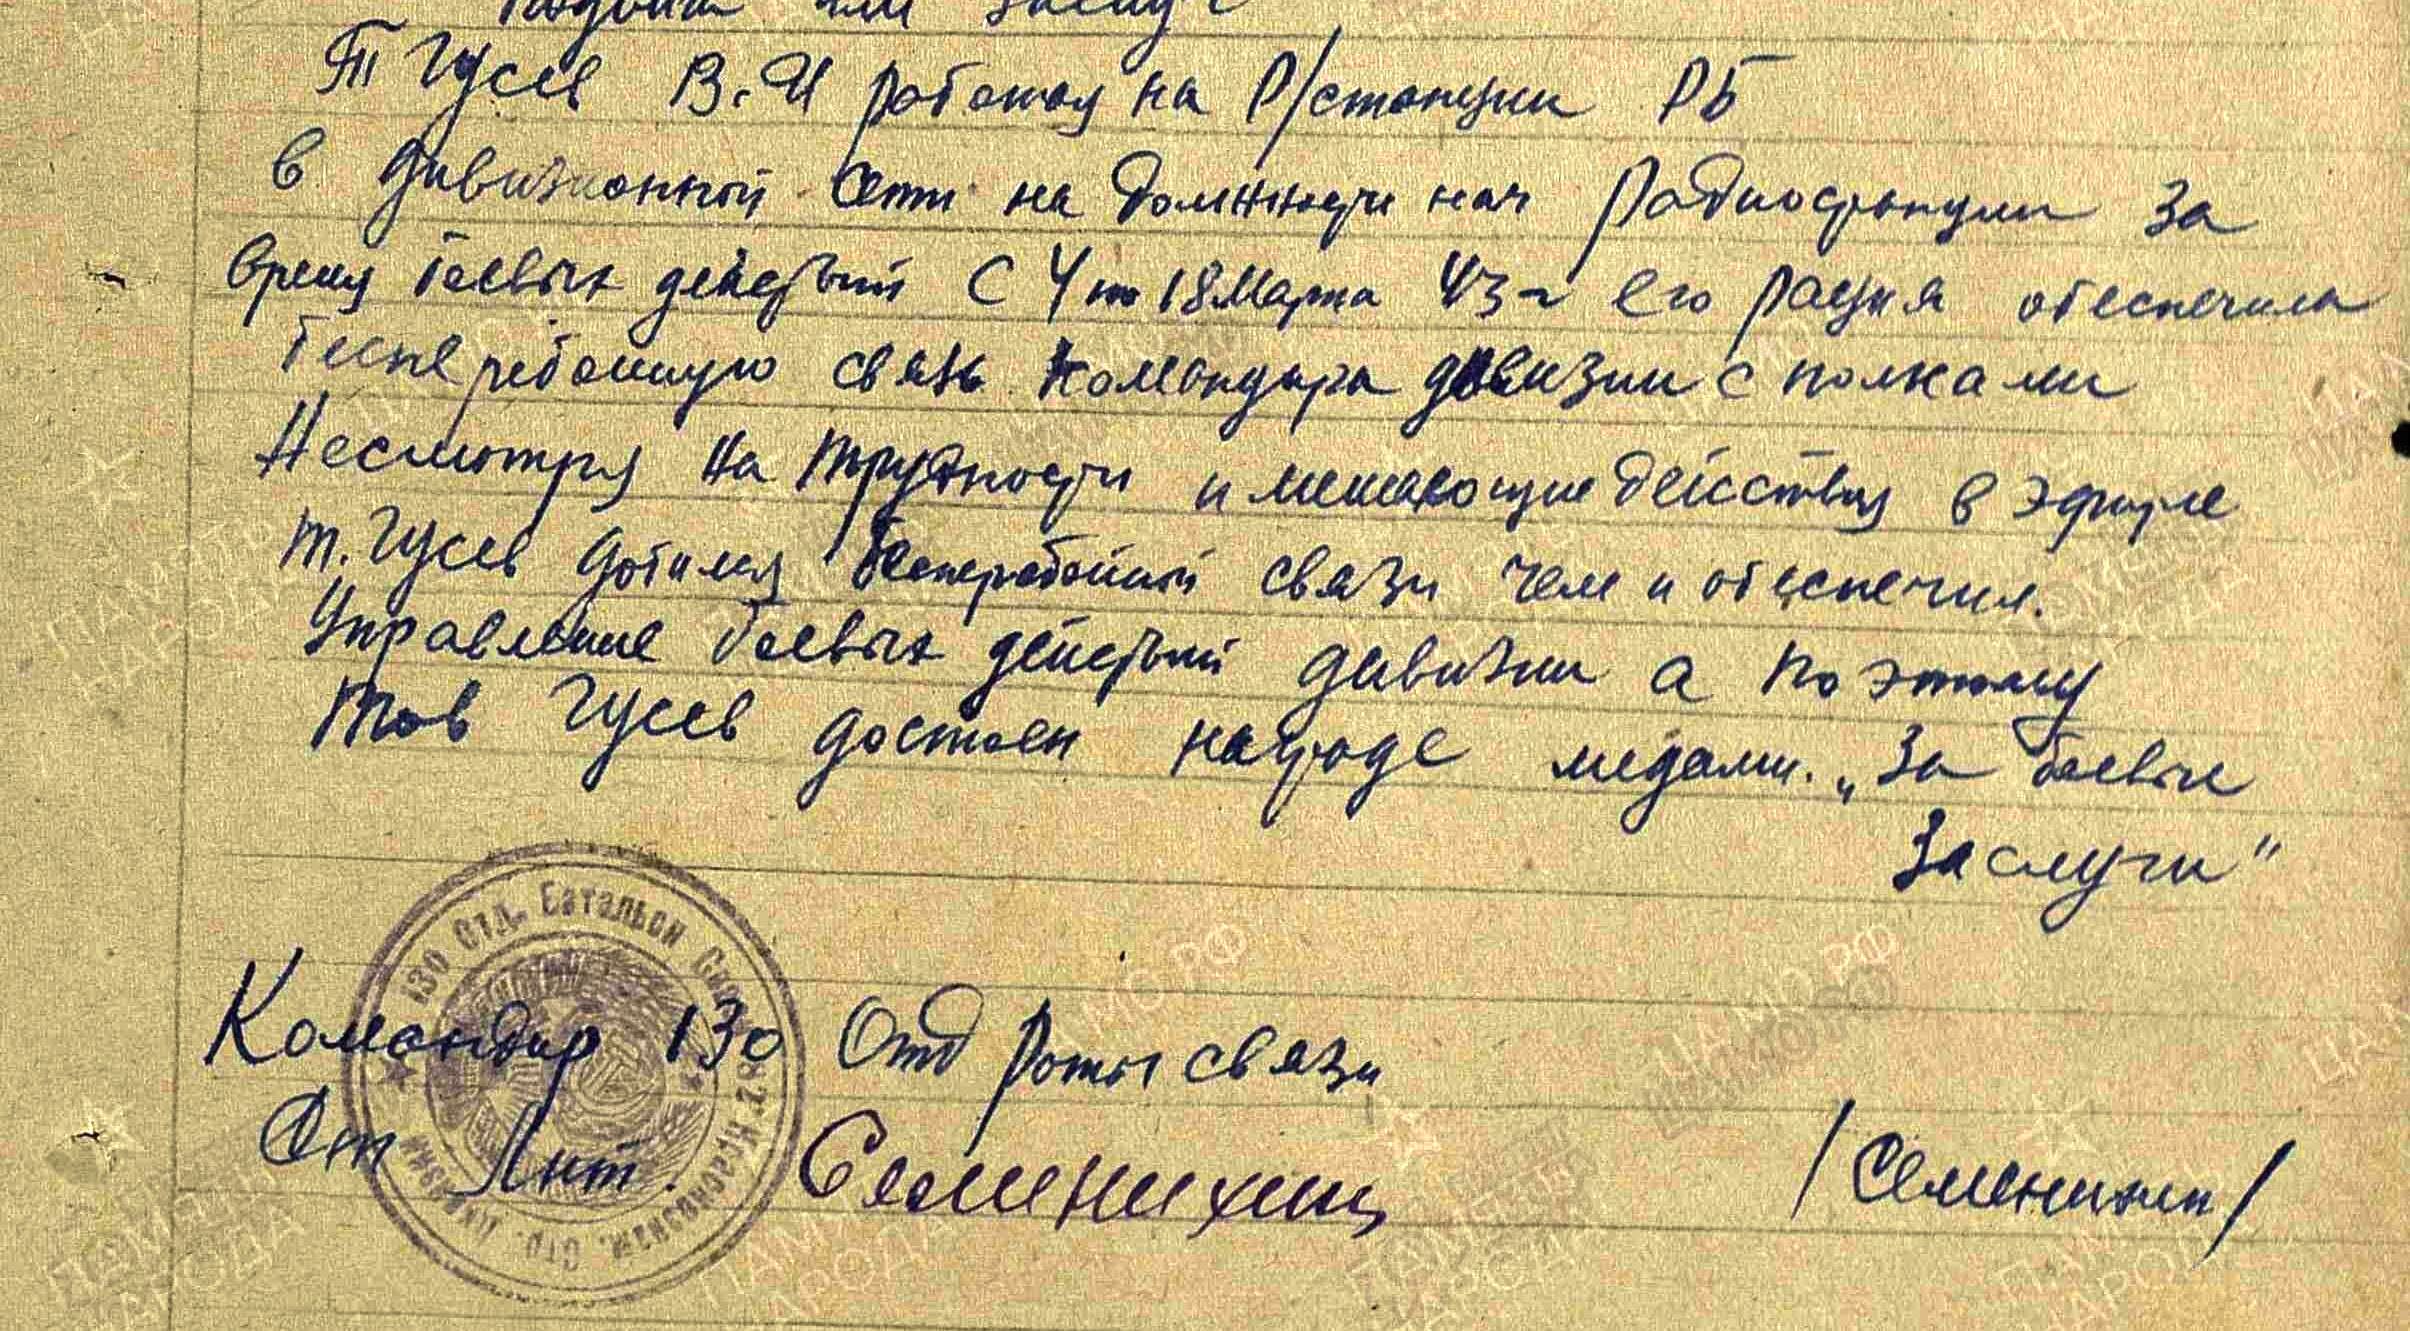 подвига или заслуг
Т Гусев В.И работая на Р/станции РБ
в дивизионной сети на должности нач радиостанции за
время боевых действий с 4 по 18 Марта 43 г его рация обеспечила
бесперебойную связь командира дивизии с полками
Несмотря на трудности и мешающие действия в эфире
т. Гусев добился бесперебойной связи чем и обеспечил.
Управление боевых действий дивизии а поэтому
Тов Гусев достоен награде медали. „За боевые
Заслуги"
130 Отд. Батальон
Стр. Дивизии
Командир 130 Отд роты связи
Ст Лнт. Семенихин /Семенихин/
ПАМЯТЬ НАРОДА
ЦАМО РФ